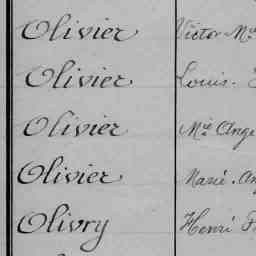 Olivier Victor Me
Olivier Louis.
Olivier Mie Ange
Olivier Marie. An
Olivry Henri F